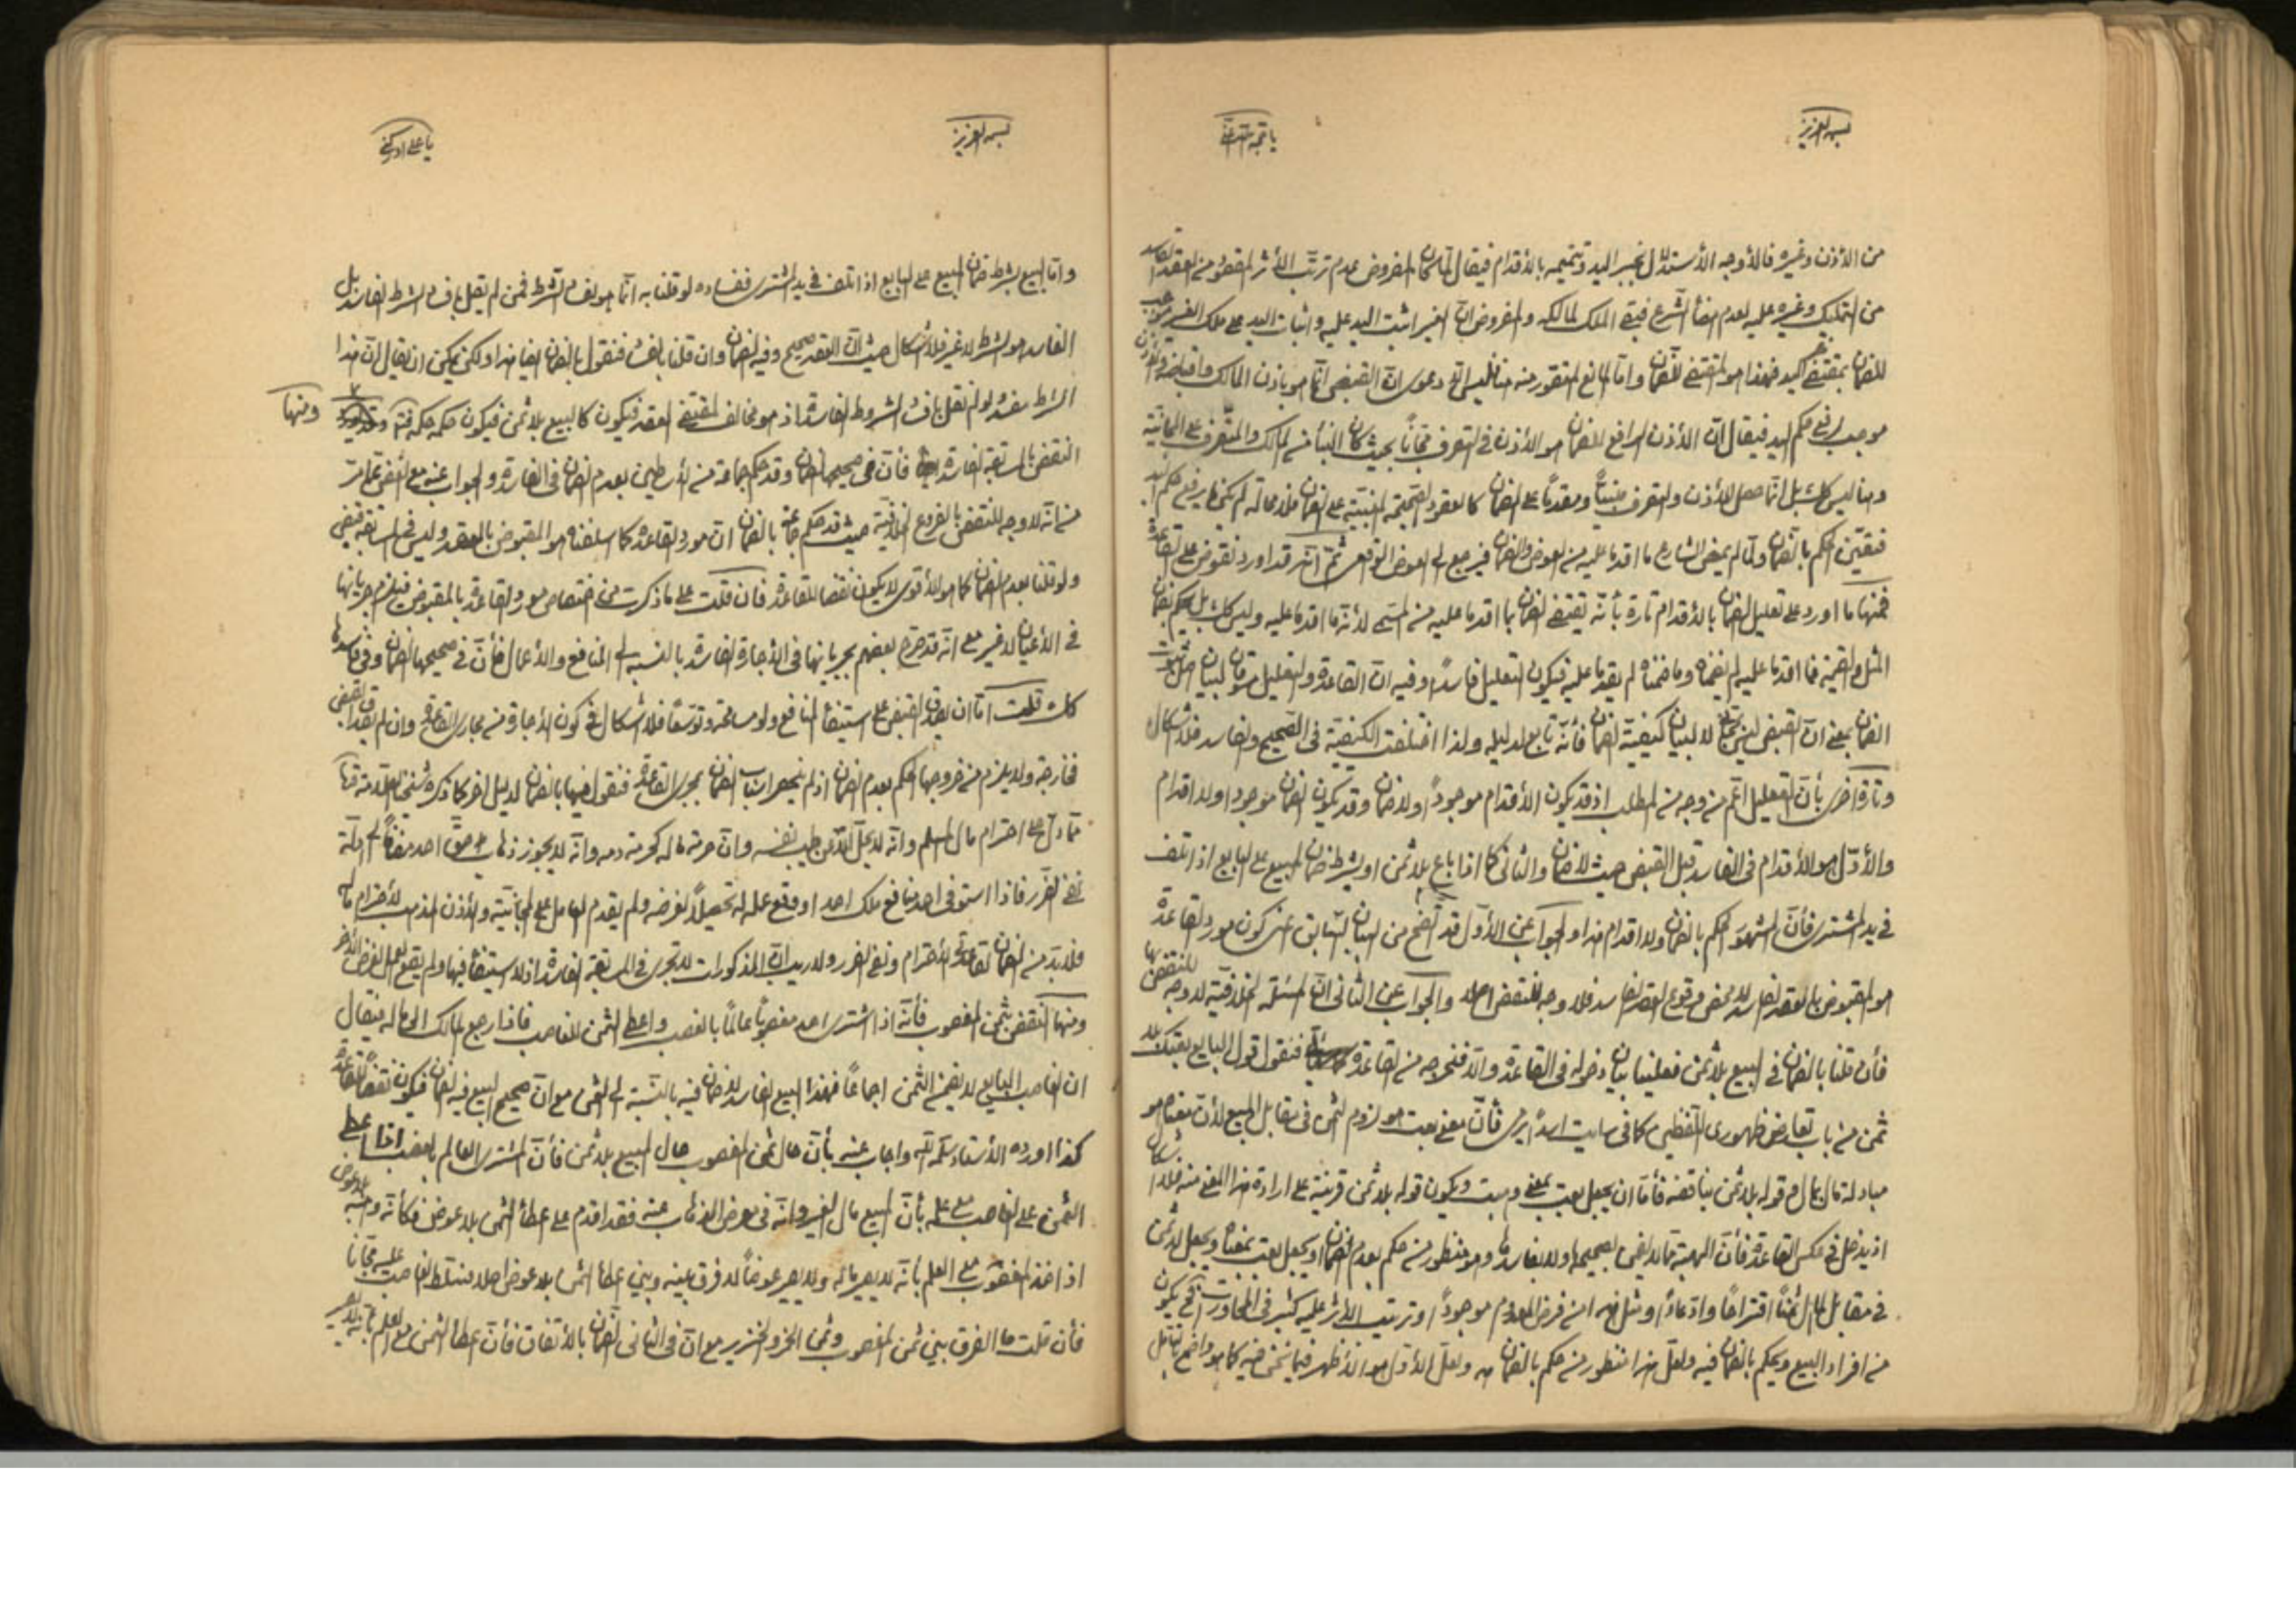 بسمه العزيز
يا حجة الله
من الأذن وغيره فالأوجه الأستدلال بخبر اليد وتتميمه بالأقدام فيقال لما كان المفروض عدم ترتب الأثر المقصود من العقد الفاسد
من التمليك وغيره عليه لعدم امضاء الشرع فيبقى الملك لمالكه والمفروض ان الغير اثبت اليد عليه واثبات اليد على ملك الغير موجب
للضمان بمقتضى خبر اليد فهذا هو المقتضى للضمان واما المانع المتصور منه هنا فليس الا دعوى ان القبض انما هو باذن المالك واقباضه والأذن
موجب لرفع حكم اليد فيقال ان الأذن الرافع للضمان هو الأذن في التصرف مجانا بحيث كان البناء من المالك والمتصرف على المجانية
وهنا ليس كك بل انما حصل الأذن والتصرف مبنيا ومقدما على الضمان كالعقود الصحيحة المبنية على الضمان فلا محالة لم يكن ما يرفع حكم اليد
فتعين الحكم بالضمان ولما لم يمض الشارع ما اقدما عليه من العوض والضمان فيرجع الى العوض الواقعى ثم انه قد اورد نقوض على القاعدة
فمنها ما اورد على تعليل الضمان بالأقدام تارة بأنه يقتضى الضمان بما اقدما عليه من المسمى لأنه ما اقدما عليه وليس كك بل يحكم بضمان
المثل والقيمة فما اقدما عليه لم يضمناه وما ضمناه لم يقدما عليه فيكون التعليل فاسدا وفيه ان القاعدة والتعليل مسوقان لبيان اصل ثبوت
الضمان بمعنى ان القبض ليس مجانا لا لبيان كيفية الضمان فأنه تابع لدليله ولذا اختلفت الكيفية في الصحيح والفاسد فلا اشكال
وتارة اخرى بأن التعليل اعم من وجه من المطلب اذ قد يكون الأقدام موجودا ولا ضمان وقد يكون الضمان موجودا ولا اقدام
والأول هو الأقدام في الفاسد قبل القبض حيث لا ضمان والثانى كما اذا باع بلا ثمن او بشرط ضمان المبيع على البايع اذا تلف
في يد المشترى فأن المشهور الحكم بالضمان ولا اقدام هذا والجواب عن الأول قد اتضح من البيان السابق من كون مورد القاعدة
هو المقبوض بالعقد الفاسد لا محض وقوع العقد الفاسد فلا وجه للنقض اصلا والجواب عن الثانى ان المسئلة الخلافية لا وجه للنقض بها
فأن قلنا بالضمان في البيع بلا ثمن فعلينا بيان دخوله في القاعدة والا فنخرجه من القاعدة فنقول قول البايع بعتك بلا
ثمن من باب تعارض ظهورى اللفظين كما في رايت اسدا يرمى فأن معنى بعت هو لزوم الثمن في مقابل المبيع لأن معناه هو
مبادلة مال بمال وقوله بلا ثمن يناقضه فأما ان يجعل بعت بمعنى وهبت ويكون قوله بلا ثمن قرينة على ارادة هذا المعنى منه فلا اشكال
اذ يدخل في عكس القاعدة فأن الهبة مما لا يضمن بصحيحها ولا بفاسدها وهو منظور من حكم بعدم الضمان او يجعل بعت بمعناه ويجعل لا ثمن
في مقابل المال ثمنا اقتراحا وادعاء ومثل هذا من فرض المعدوم موجودا وترتيب الأثر عليه كثير في المحاورات فح يكون
من افراد البيع ويحكم بالضمان فيه ولعل هذا منظور من حكم بالضمان ولعل الأول هو الأظهر فيما نحن فيه كما هو واضح لمن تأمل
بسمه العزيز
يا على ادركنى
واما البيع بشرط ضمان المبيع على البايع اذا تلف في يد المشترى ففساده لو قلنا به انما هو لفساد الشرط فمن لم يقل بافساد الشرط الفاسد بل
الفاسد هو الشرط لا غير فلا اشكال حيث ان العقد صحيح وفيه الضمان وان قلنا بافساده فنقول بالضمان ايضا هذا ولكن يمكن ان يقال ان هذا
الشرط مفسد ولو لم نقل بافساد الشروط الفاسدة اذ هو مخالف لمقتضى العقد فيكون كالبيع بلا ثمن فيكون حكمه حكمه فتدبر
ومنها
النقض بالمسابقة الفاسدة فأن في صحيحها الضمان وقد حكم جماعة من الأساطين بعدم الضمان في الفاسدة والجواب عنه مع الغض عما مر
من انه لا وجه للنقض بالفروع الخلافية حيث قد حكم جماعة بالضمان ان مورد القاعدة كما اسلفناه هو المقبوض بالعقد وليس في المسابقة قبض
ولو قلنا بعدم الضمان كما هو الأقوى لا يكون نقضا للقاعدة فان قلت على ما ذكرت من اختصاص مورد القاعدة بالمقبوض فيلزم جريانها
في الأعيان لا غير مع انه قد صرح بعضهم بجريانها في الأجارة الفاسدة بالنسبة الى المنافع والأعمال فأن في صحيحها الضمان وفى فاسدها
كك قلت اما ان يصدق القبض على استيفاء المنافع ولو مسامحة وتوسعا فلا اشكال في كون الأجارة من مجارى القاعدة وان لم يصدق القبض
فخارجة ولا يلزم من خروجها الحكم بعدم الضمان اذ لم ينحصر اسباب الضمان بمجرى القاعدة فنقول فيها بالضمان لدليل اخر كما ذكره شيخنا العلامة
مما دل على احترام مال المسلم وانه لا يحل الا عن طيب نفسه وان حرمة ماله كحرمة دمه وانه لا يجوز ذهاب حق احد مضافا الى ادلة
نفى الضرر فاذا استوفى احد منافع ملك احد او وقع عمله له تحصيلا لغرضه ولم يقدم العامل على المجانية والأذن المذهب لأحترام ماله
فلا بد من الضمان لقاعدتى الأحترام ونفى الضرر ولا ريب ان المذكورات لا تجرى في المسابقة الفاسدة اذ لا استيفاء فيها ولم يقع العمل لغرض الأخر
ومنها النقض بثمن المغصوب فأنه اذا اشترى احد مغصوبا عالما بالغصب واعطى الثمن للغاصب فاذا رجع المالك الى ماله فيقال
ان الغاصب البايع لا يضمن الثمن اجماعا فهذا البيع الفاسد لا ضمان فيه بالنسبة الى الثمن مع ان صحيح البيع فيه الضمان فيكون نقضا للقاعدة
كذا اورده الأستاد سلمه الله واجاب عنه بأن حال ثمن المغصوب حال المبيع بلا ثمن فأن المشترى العالم بالغصب اذا اعطى
الثمن على الغاصب مع علمه بأن المبيع مال الغير وانه في معرض الذهاب عنه فقد اقدم على اعطاء الثمن بلا عوض فكأنه وهبه بلا عوض
اذ اخذ المغصوب مع العلم بأنه لا يصير ماله ولا يصير عوضا لا فرق بينه وبين اعطاء الثمن بلا عوض اصلا فتسلط الغاصب عليه مجانا
فأن قلت ما الفرق بين ثمن المغصوب وثمن الخمر والخنزير مع ان في الثانى الضمان بالأتفاق فأن اعطاء الثمن مع العلم بأنه لا يصير